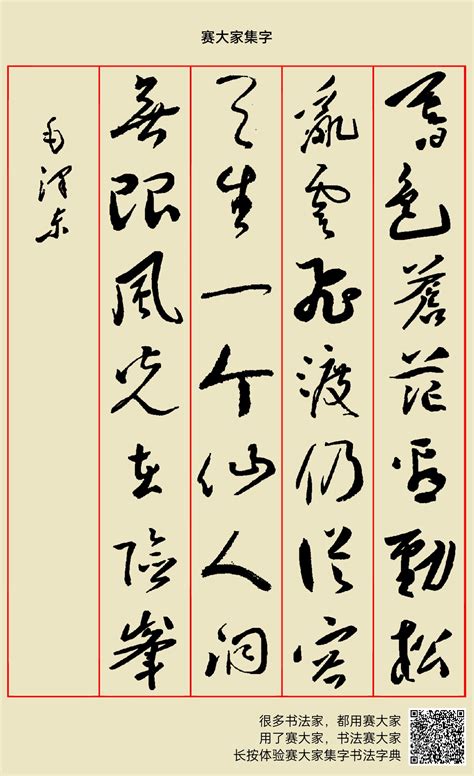 赛大家集字
暮色蒼茫看勁松
亂雲飛渡仍從容
天生一个仙人洞
無限風光在險峯
毛澤东
很多书法家，都用赛大家
用了赛大家，书法赛大家
长按体验赛大家集字书法字典